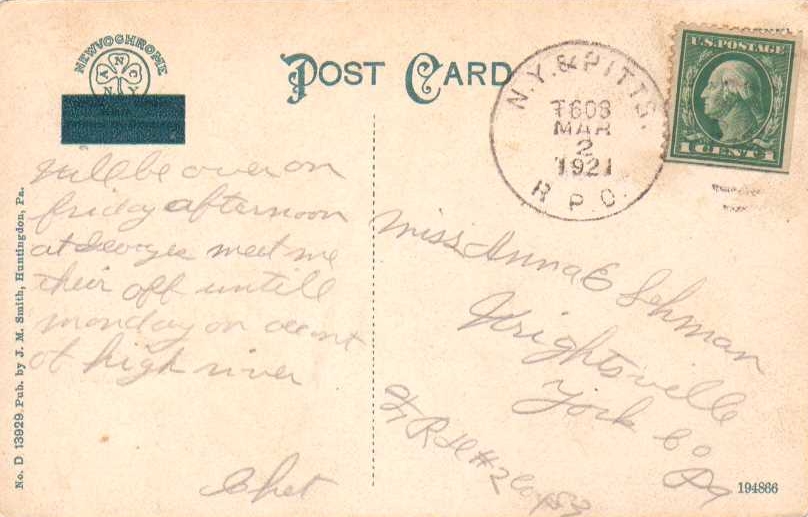 NEWVOCHROME
A N C
N Y
POST CARD
N.Y. & PITTS.
T608
MAR
2
1921
R.P.O.
U.S. POSTAGE
1 CENT 1
will be over on
friday afternoon
at Georges meet me
their off untill
monday on accont
of high river
Chet
Miss Anna E Lehman
Wrightsville
York Co
Pa
RD #2
No. D 13929 Pub. by J. M. Smith, Huntingdon, Pa.
194866